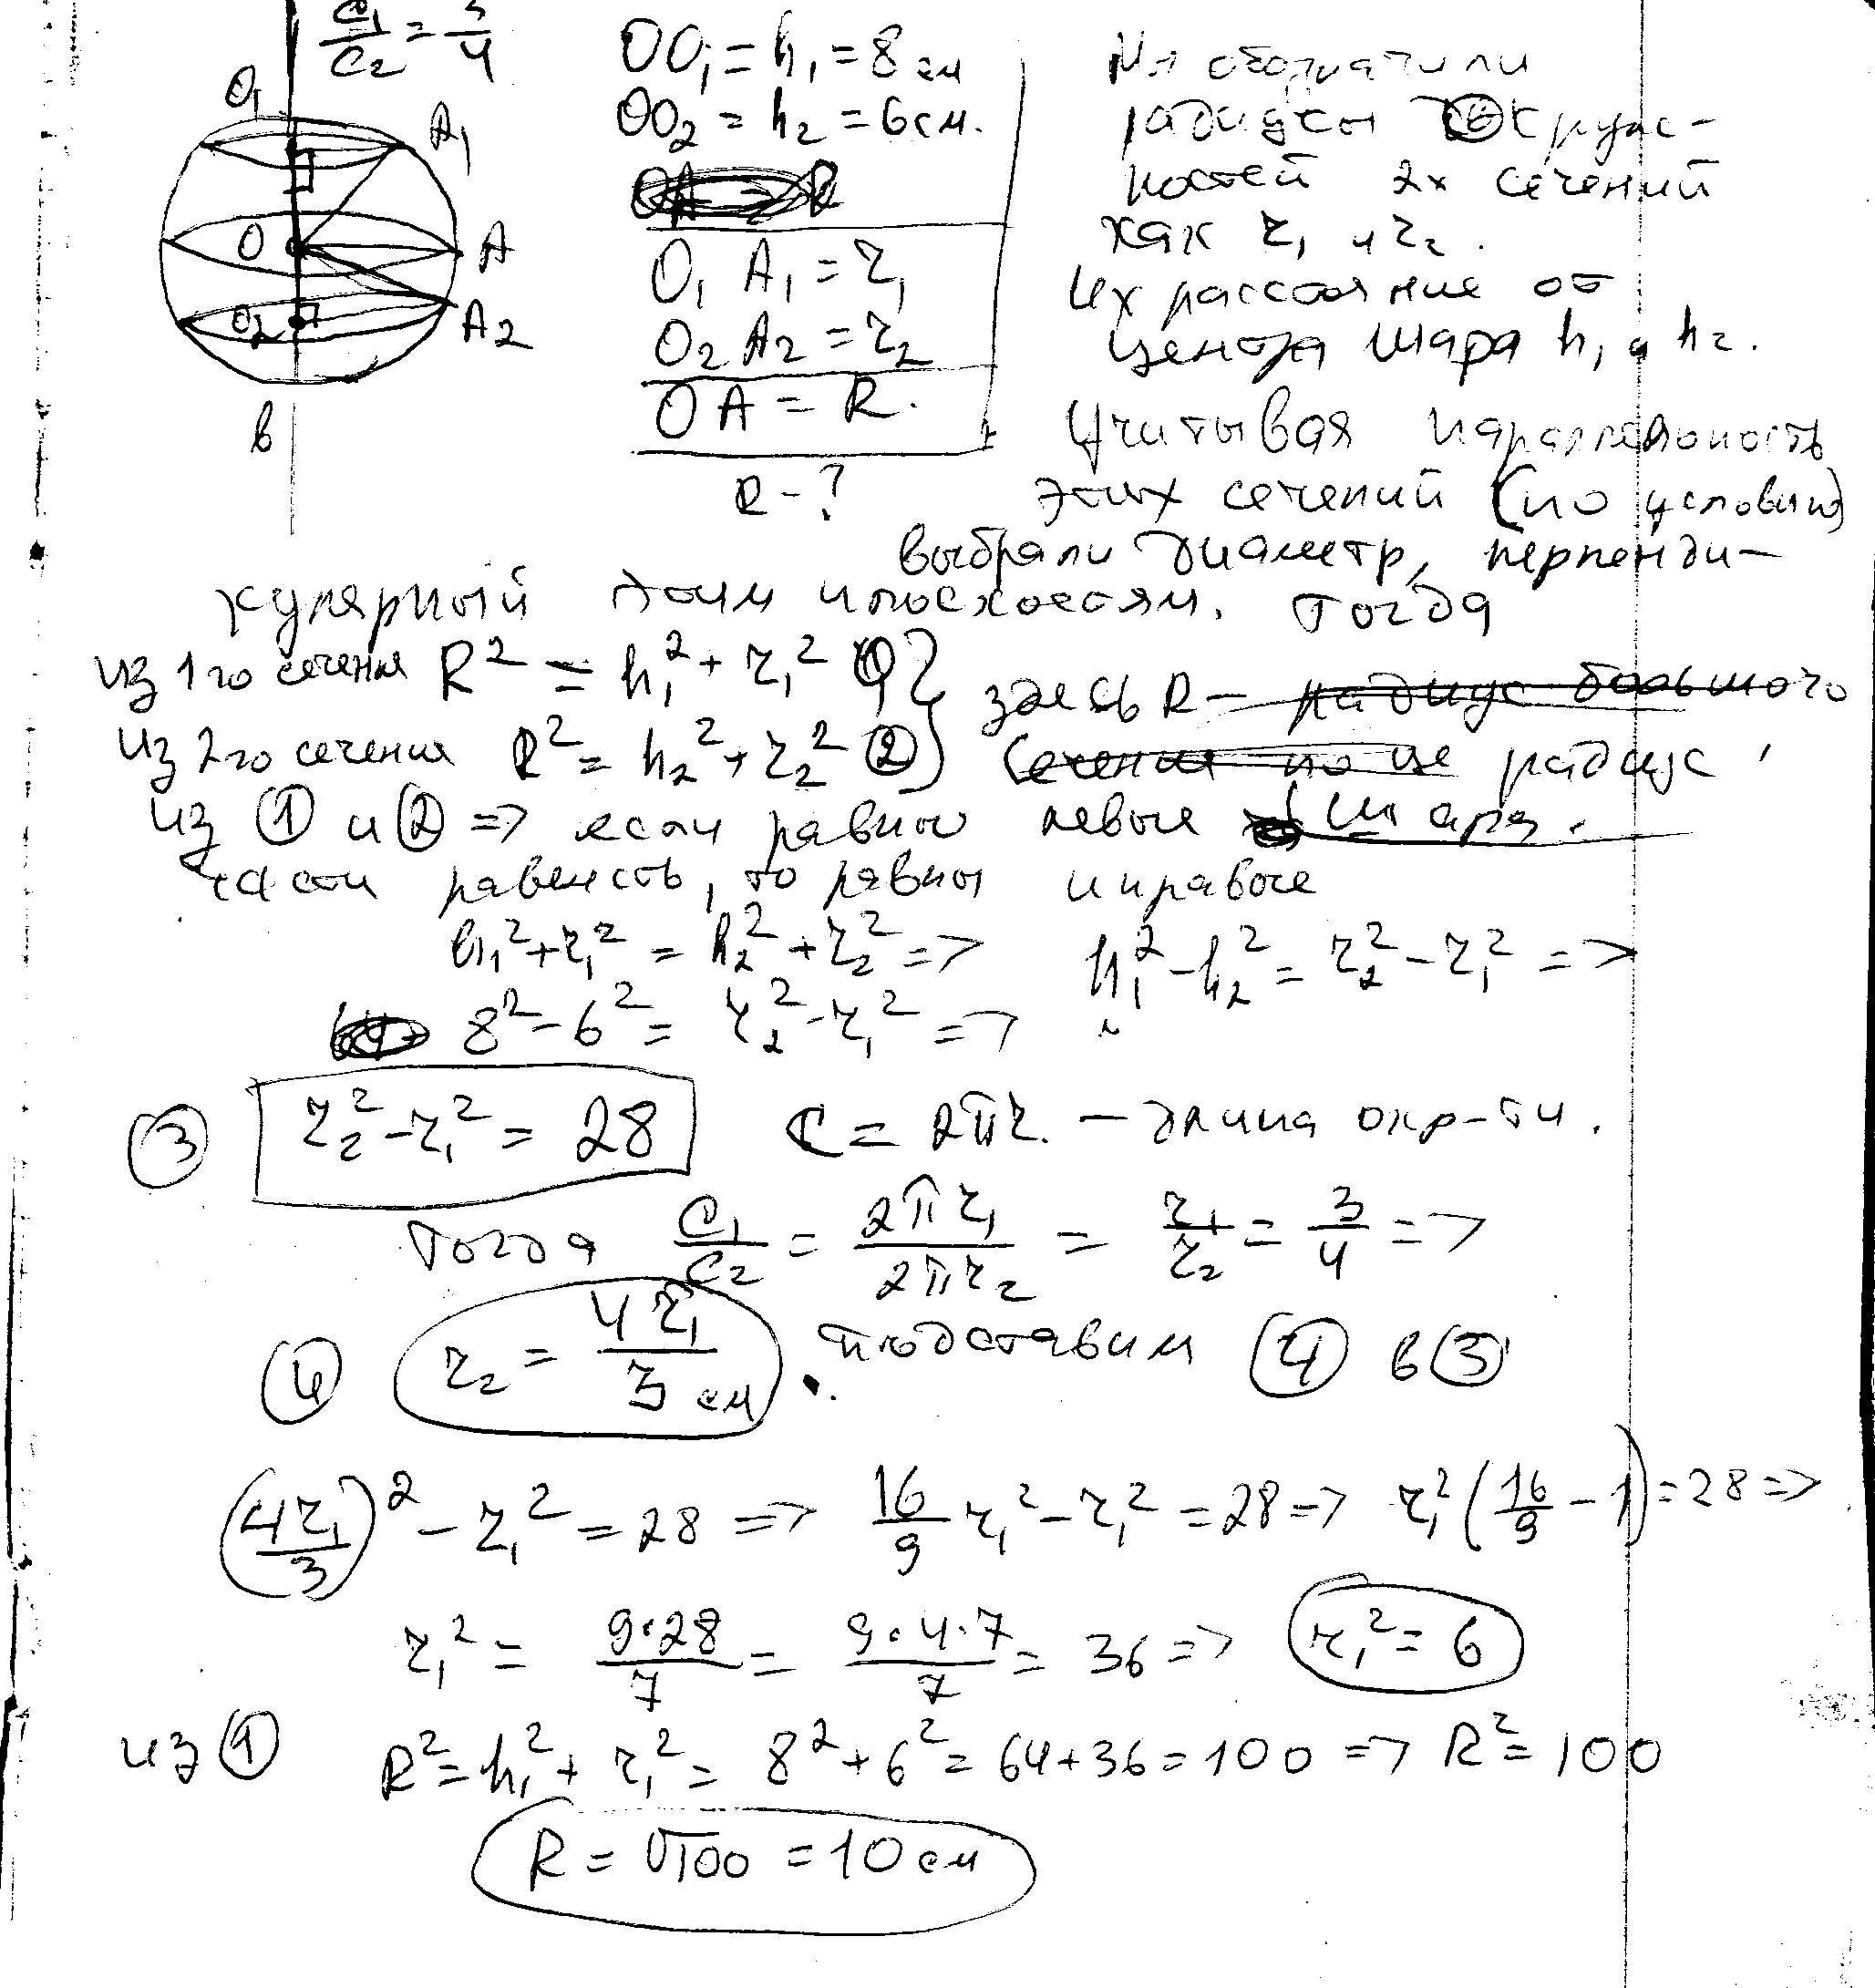 C₁/C₂ = 3/4
O₁
A₁
O
A
O₂
A₂
B
OO₁ = h₁ = 8 см
OO₂ = h₂ = 6 см.
O₁A₁ = r₁
O₂A₂ = r₂
OA = R.
R - ?
Мы обозначили
радиусы окруж-
ностей 2х сечений
как r₁ и r₂.
Их расстояние от
центра шара h₁ и h₂.
Учитывая параллельность
этих сечений (по условию)
выбрали диаметр, перпенди-
кулярный этим плоскостям. Тогда
из 1го сечения R² = h₁² + r₁² ① } здесь R – радиус большого
из 2го сечения R² = h₂² + r₂² ② } сечения радиус
из ① и ② => если равны левые шара.
части равенств, то равны и правые
h₁² + r₁² = h₂² + r₂² => h₁² - h₂² = r₂² - r₁² =>
8² - 6² = r₂² - r₁² =>
③ r₂² - r₁² = 28 C = 2πr. – длина окр-ти.
Тогда C₁/C₂ = 2πr₁/2πr₂ = r₁/r₂ = 3/4 =>
④ r₂ = 4r₁/3 см. подставим ④ в ③
(4r₁/3)² - r₁² = 28 => 16/9 r₁² - r₁² = 28 => r₁²(16/9 - 1) = 28 =>
r₁² = 9·28/7 = 9·4·7/7 = 36 => r₁² = 6
из ① R² = h₁² + r₁² = 8² + 6² = 64 + 36 = 100 => R² = 100
R = √100 = 10 см